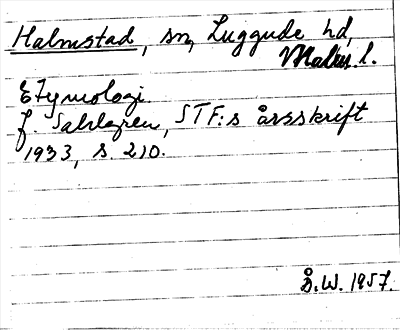 Halmstad, sn, Luggude hd,
Malm. l.
Etymologi
J. Sahlgren, STF:s årsskrift
1933, s. 210.
D.W. 1957.